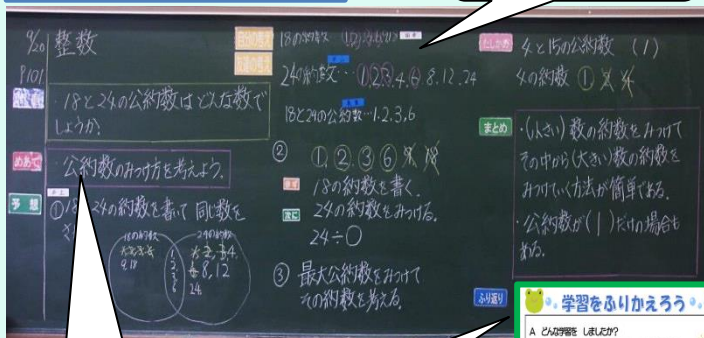 9/20 整数
P101
・18と24の公約数はどんな数で
しょうか。
めあて
・公約数のみつけ方を考えよう。
予想
①18 24の約数を書いて同じ数を
18の約数
24の約数
9,18
8,12
24
1
2
3
6
自分の考え
友達の考え
18の約数
24の約数…1,2,3,4,6,8,12,24
18と24の公約数…1,2,3,6
② 1,2,3,6,9,18
まず 18の約数を書く。
次に 24の約数をみつける。
24÷○
③ 最大公約数をみつけて
その約数を考える。
たしかめ
4と15の公約数 (1)
4の約数 1 2 4
まとめ
・(小さい)数の約数をみつけて
その中から(大きい)数の約数を
みつけていく方法が簡単である。
・公約数が(1)だけの場合も
ある。
ふり返り
学習をふりかえろう
A どんな学習を しましたか?